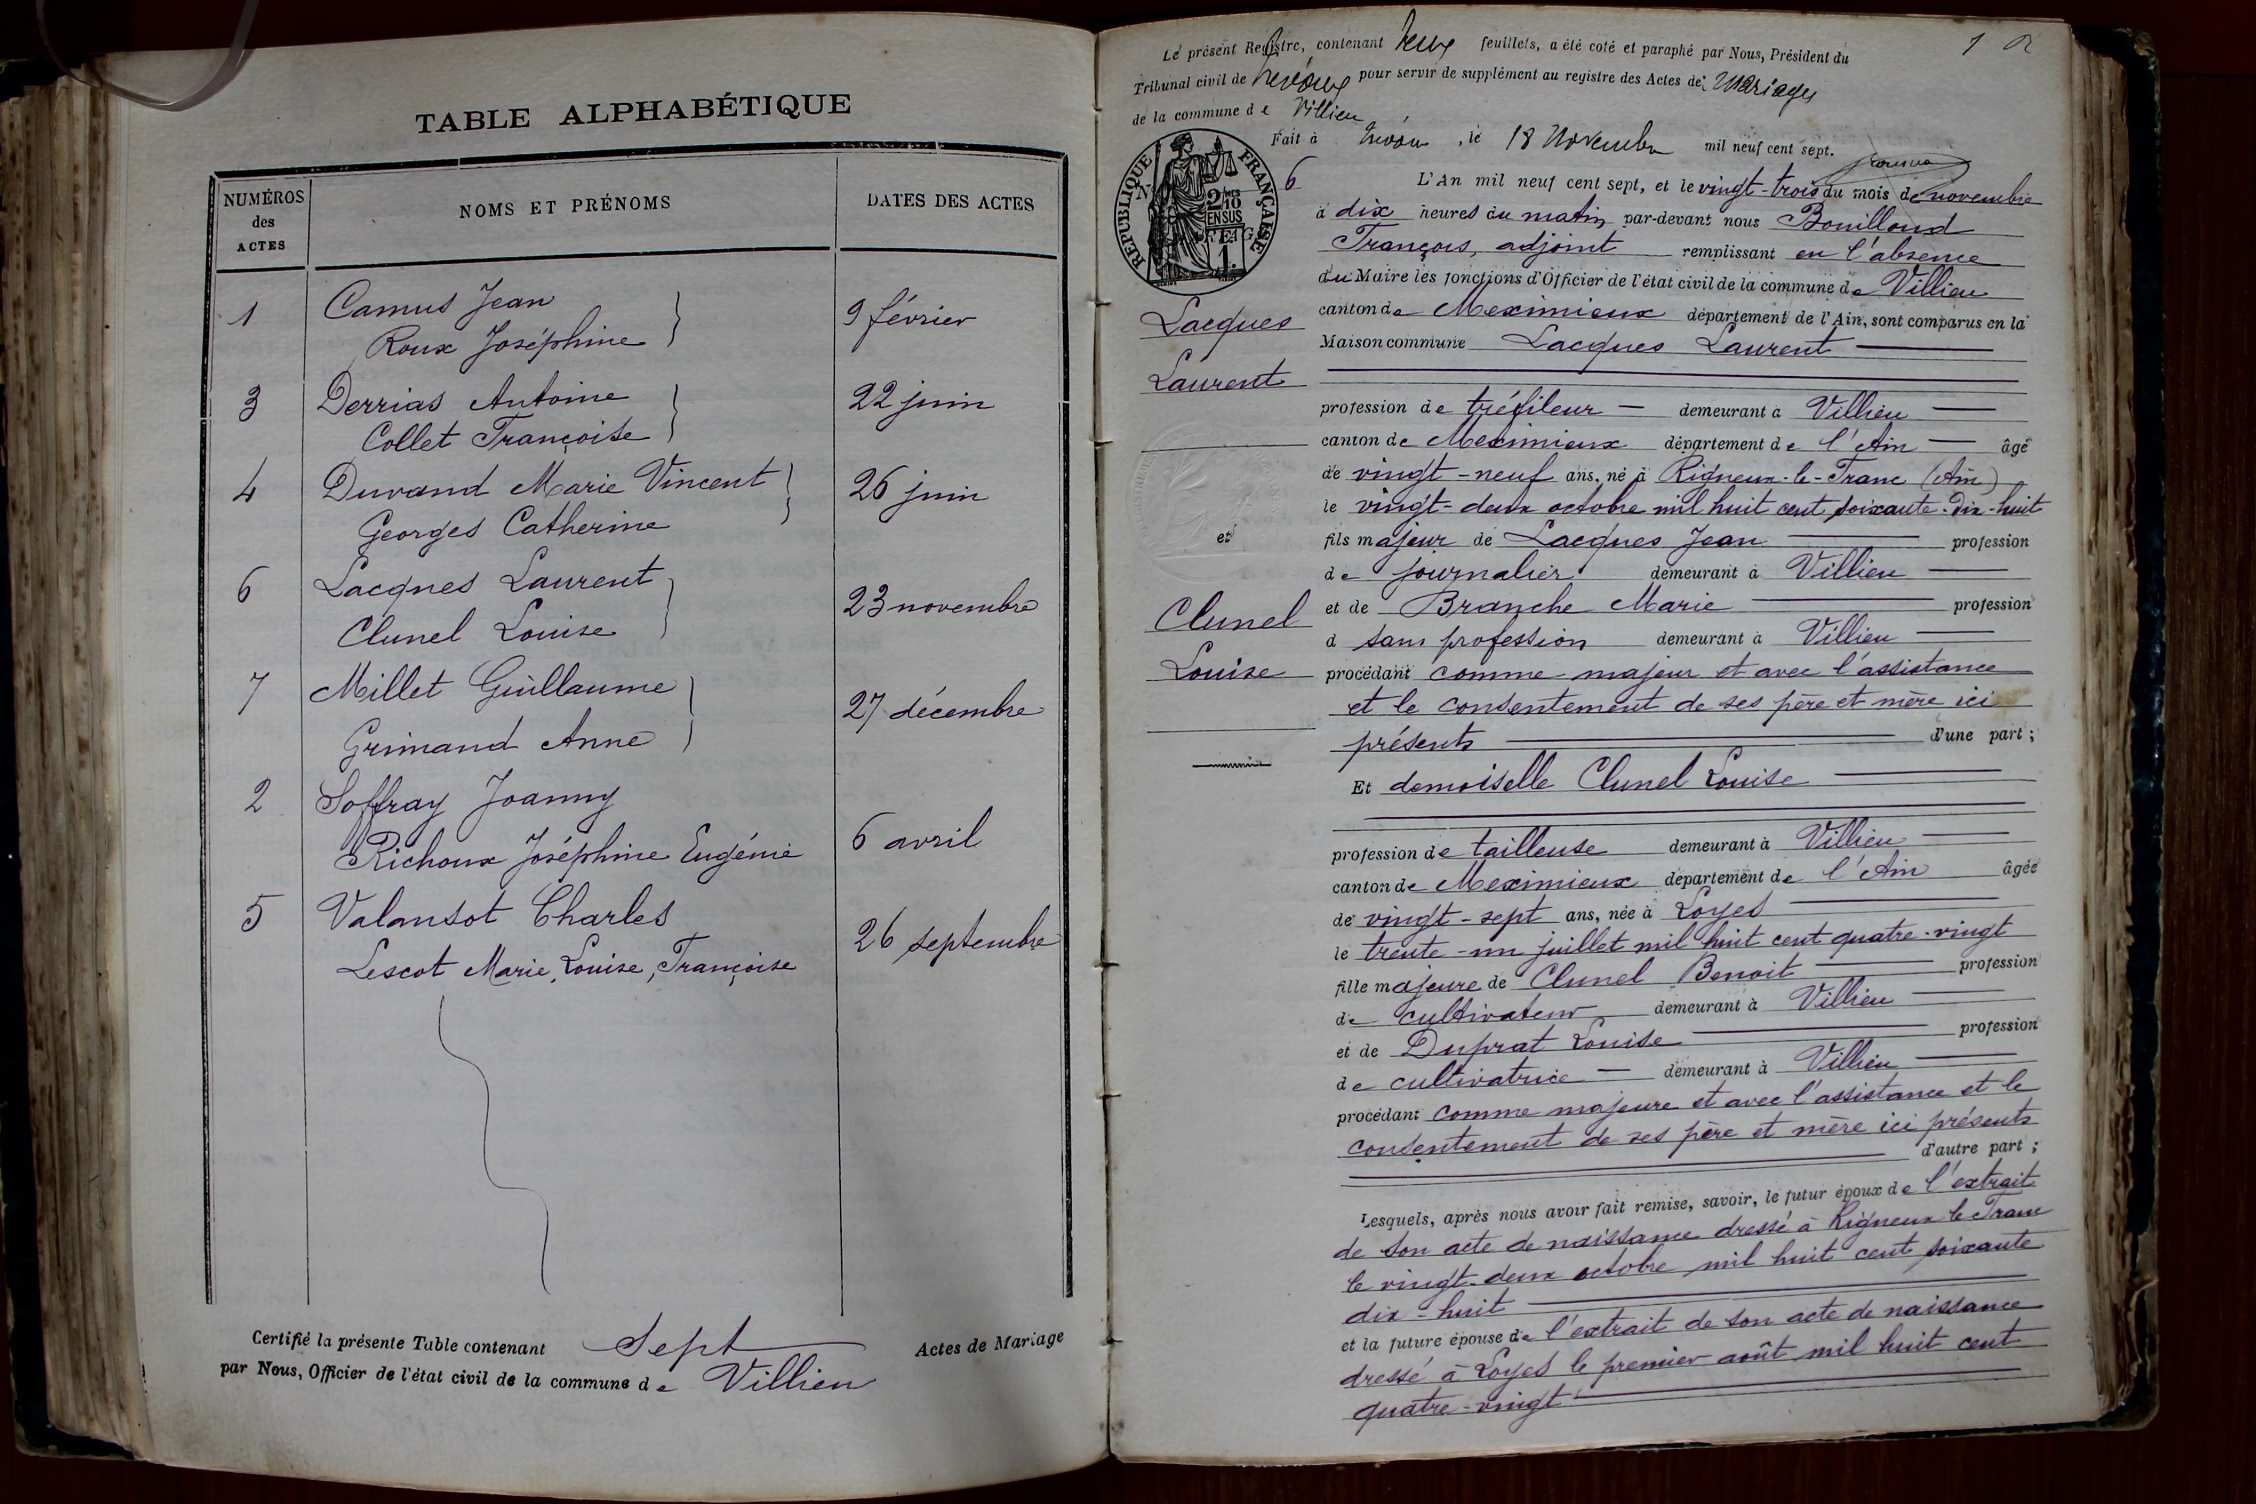 TABLE ALPHABÉTIQUE
NUMÉROS des ACTES
NOMS ET PRÉNOMS
DATES DES ACTES
1 Camus Jean 9 février
Roux Joséphine
3 Derrias Antoine 22 juin
Collet Françoise
4 Durand Marie Vincent 26 juin
Georges Catherine
6 Lacques Laurent 23 novembre
Clunel Louise
7 Millet Guillaume 27 décembre
Grimand Anne
2 Soffray Joanny
Richoux Joséphine Eugénie 6 avril
5 Valansot Charles 26 septembre
Lescot Marie, Louise, Françoise
Certifié la présente Table contenant Sept Actes de Mariage
par Nous, Officier de l'état civil de la commune de Villieu
1
Le présent Registre, contenant deux feuillets, a été coté et paraphé par Nous, Président du
Tribunal civil de Trévoux pour servir de supplément au registre des Actes de Mariages
de la commune de Villieu
Fait à Trévoux, le 18 Novembre mil neuf cent sept.
RÉPUBLIQUE FRANÇAISE
2/10 EN SUS
1.
6
L'An mil neuf cent sept, et le vingt-trois du mois de novembre
à dix heures du matin, par-devant nous Bouilloud
François, adjoint remplissant en l'absence
du Maire les fonctions d'Officier de l'état civil de la commune de Villieu
canton de Meximieux département de l'Ain, sont comparus en la
Maison commune Lacques Laurent
Lacques
Laurent
et
Clunel
Louise
profession de tréfileur demeurant à Villieu
canton de Meximieux département de l'Ain âgé
de vingt-neuf ans, né à Rigneux-le-Franc (Ain)
le vingt-deux octobre mil huit cent soixante-dix-huit
fils majeur de Lacques Jean profession
de journalier demeurant à Villieu
et de Branche Marie profession
d sans profession demeurant à Villieu
procédant comme majeur et avec l'assistance
et le consentement de ses père et mère ici
présents d'une part ;
Et demoiselle Clunel Louise
profession de tailleuse demeurant à Villieu
canton de Meximieux département de l'Ain âgée
de vingt-sept ans, née à Loyes
le trente-un juillet mil huit cent quatre-vingt
fille majeure de Clunel Benoit profession
de cultivateur demeurant à Villieu
et de Duprat Louise profession
de cultivatrice demeurant à Villieu
procédant comme majeure et avec l'assistance et le
consentement de ses père et mère ici présents
d'autre part ;
Lesquels, après nous avoir fait remise, savoir, le futur époux de l'extrait
de son acte de naissance dressé à Rigneux le Franc
le vingt-deux octobre mil huit cent soixante
dix-huit
et la future épouse de l'extrait de son acte de naissance
dressé à Loyes le premier août mil huit cent
quatre-vingt